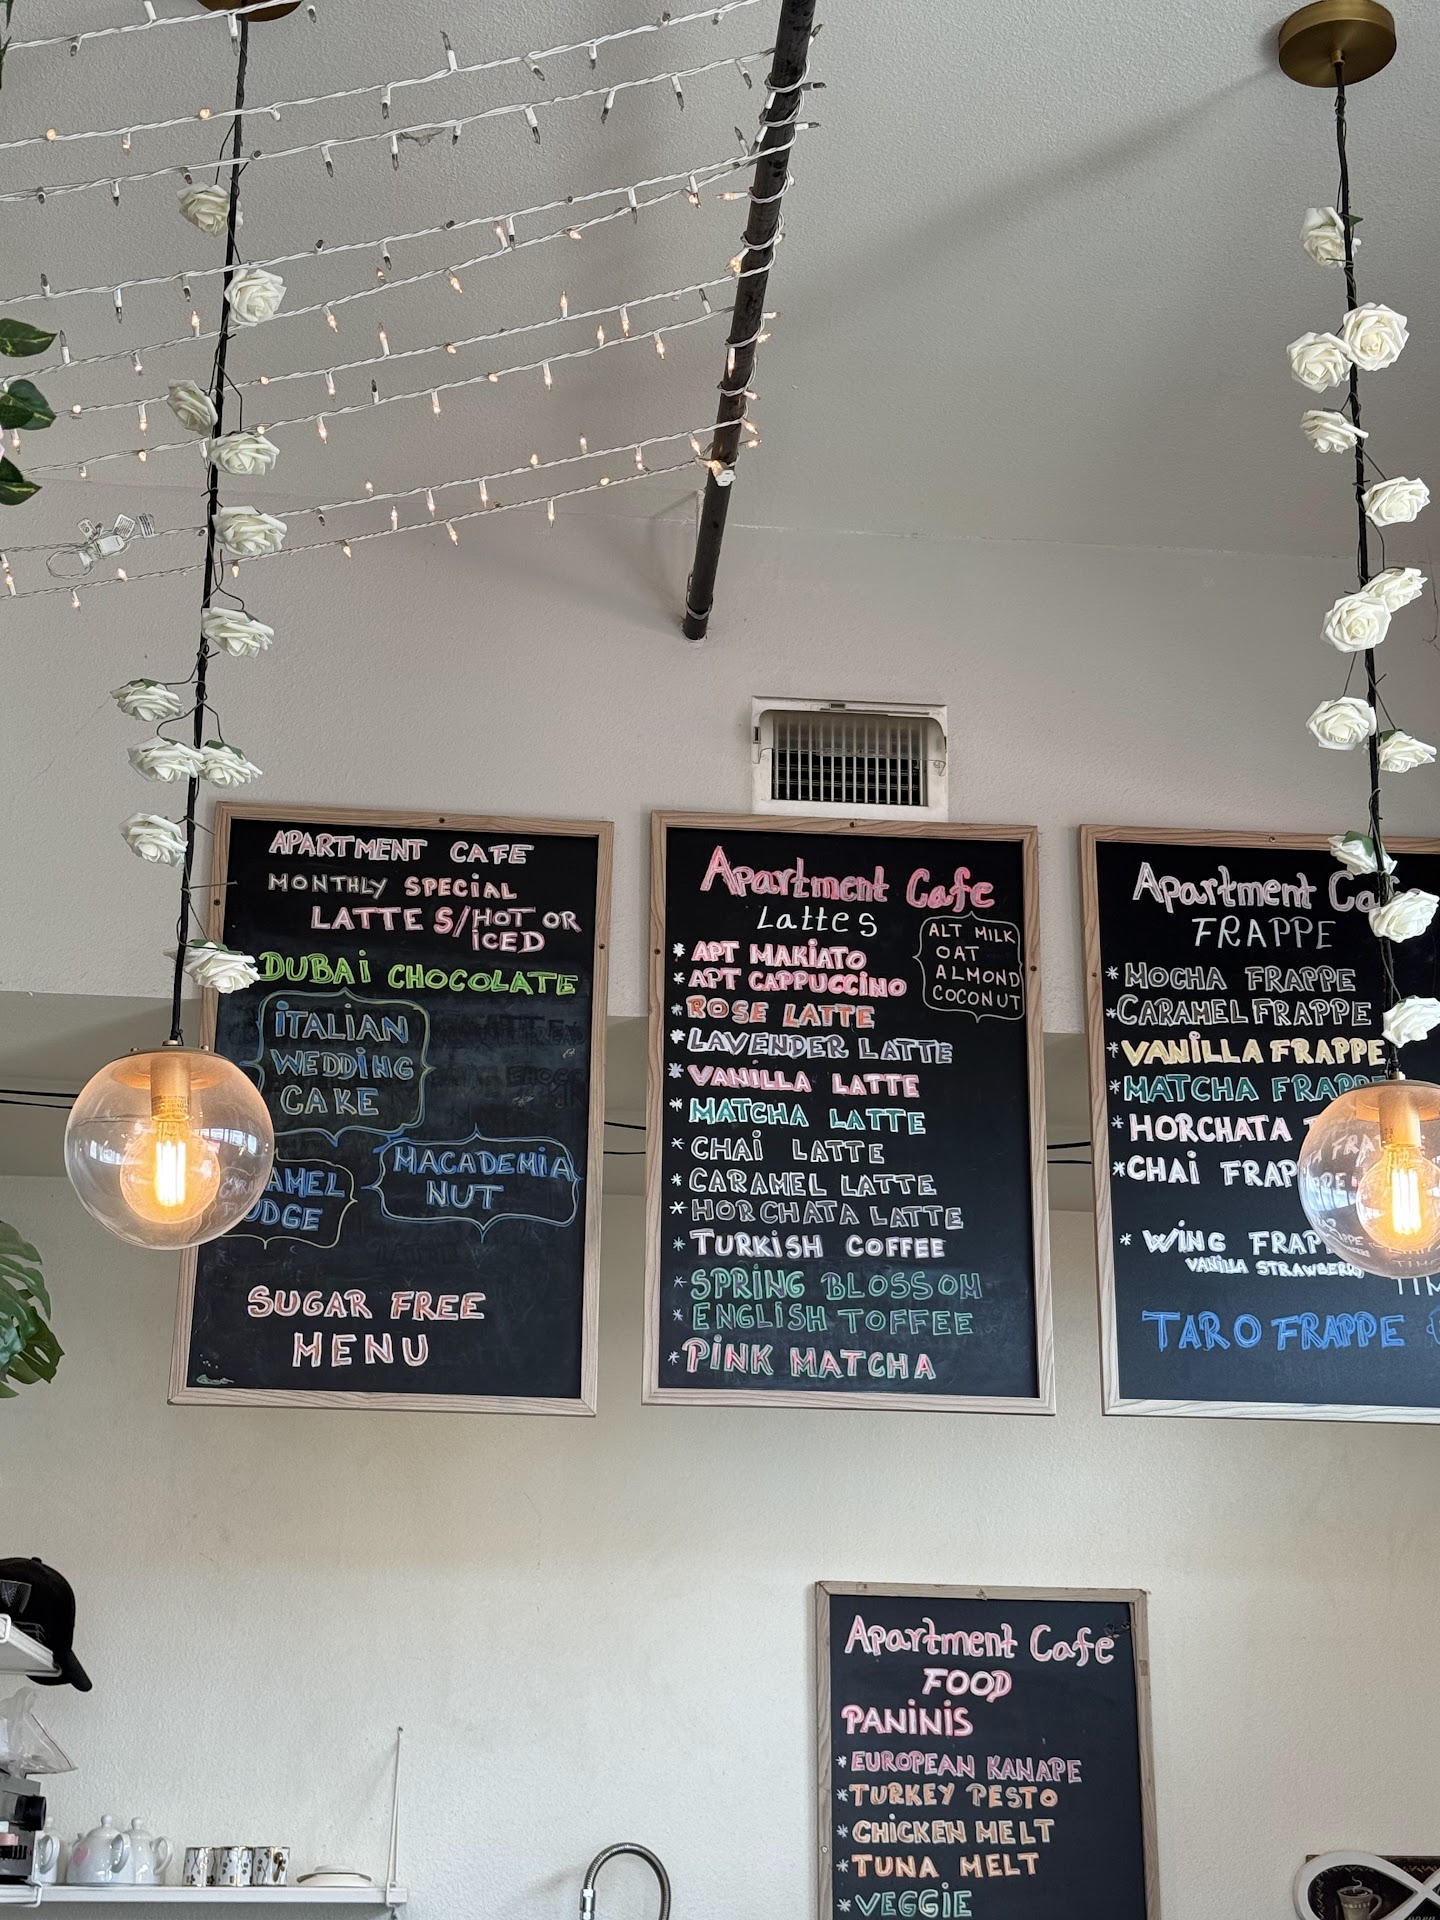 APARTMENT CAFE
MONTHLY SPECIAL
LATTES/HOT OR
ICED
DUBAI CHOCOLATE
ITALIAN
WEDDING
CAKE
MACADEMIA
NUT
SUGAR FREE
MENU
Apartment Cafe
Lattes
ALT MILK
OAT
ALMOND
COCONUT
* APT MAKIATO
* APT CAPPUCCINO
* ROSE LATTE
* LAVENDER LATTE
* VANILLA LATTE
* MATCHA LATTE
* CHAI LATTE
* CARAMEL LATTE
* HORCHATA LATTE
* TURKISH COFFEE
* SPRING BLOSSOM
* ENGLISH TOFFEE
* PINK MATCHA
Apartment Caf
FRAPPE
* MOCHA FRAPPE
* CARAMEL FRAPPE
* VANILLA FRAPPE
* MATCHA FRAPPE
* HORCHATA
* CHAI FRAPPE
* WING FRAP
VANILLA STRAWBERRY
TARO FRAPPE
Apartment Cafe
FOOD
PANINIS
* EUROPEAN KANAPE
* TURKEY PESTO
* CHICKEN MELT
* TUNA MELT
* VEGGIE